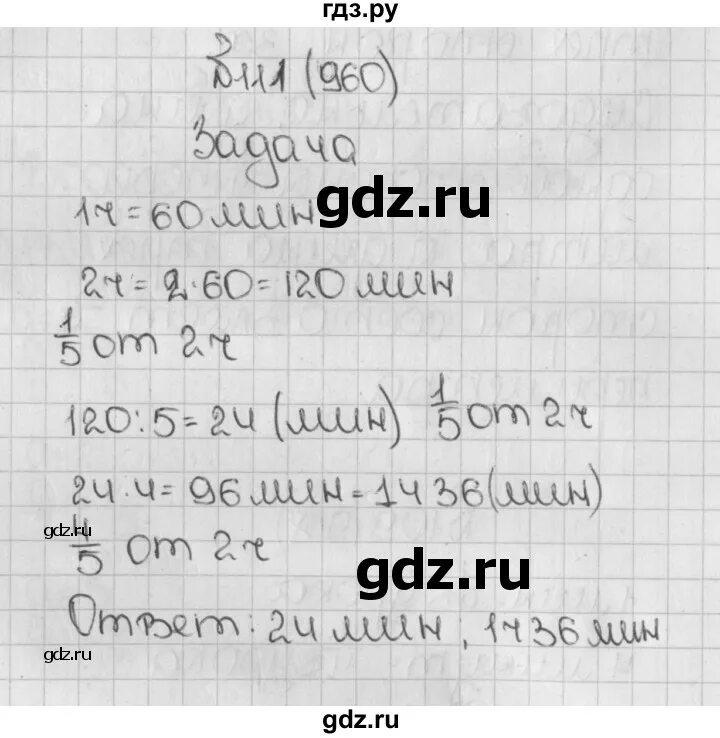 гдз.ру
В111 (960)
Задача
gdz.ru
1ч = 60 мин
2ч = 2·60 = 120 мин
1/5 от 2ч
120:5 = 24 (мин) 1/5 от 2ч
24·4 = 96 мин = 1ч 36 (мин)
gdz.ru
4/5 от 2ч
gdz.ru
Ответ: 24 мин; 1ч 36 мин
gdz.ru
gdz.ru